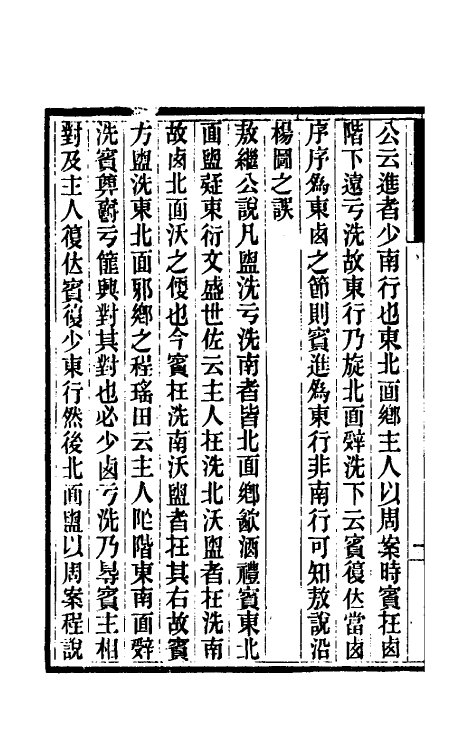 公云進者少南行也東北面鄉主人以周案時賓在㢴
階下遠亏洗故東行乃旋北面辤洗下云賓復位當㢴
序序爲東㢴之節則賓進爲東行非南行可知敖說沿
楊圖之誤
敖繼公說凡盥洗亏洗南者皆北面鄉飮酒禮賓東北
面盥疑東衍文盛世佐云主人在洗北沃盥者在洗南
故㢴北面沃之便也今賓在洗南沃盥者在其右故賓
方盥洗東北面邪鄉之程瑤田云主人阼階東南面辤
洗賓奠爵亏篚興對其對也必少㢴亏洗乃與賓主相
對及主人復位賓復少東行然後北面盥以周案程說